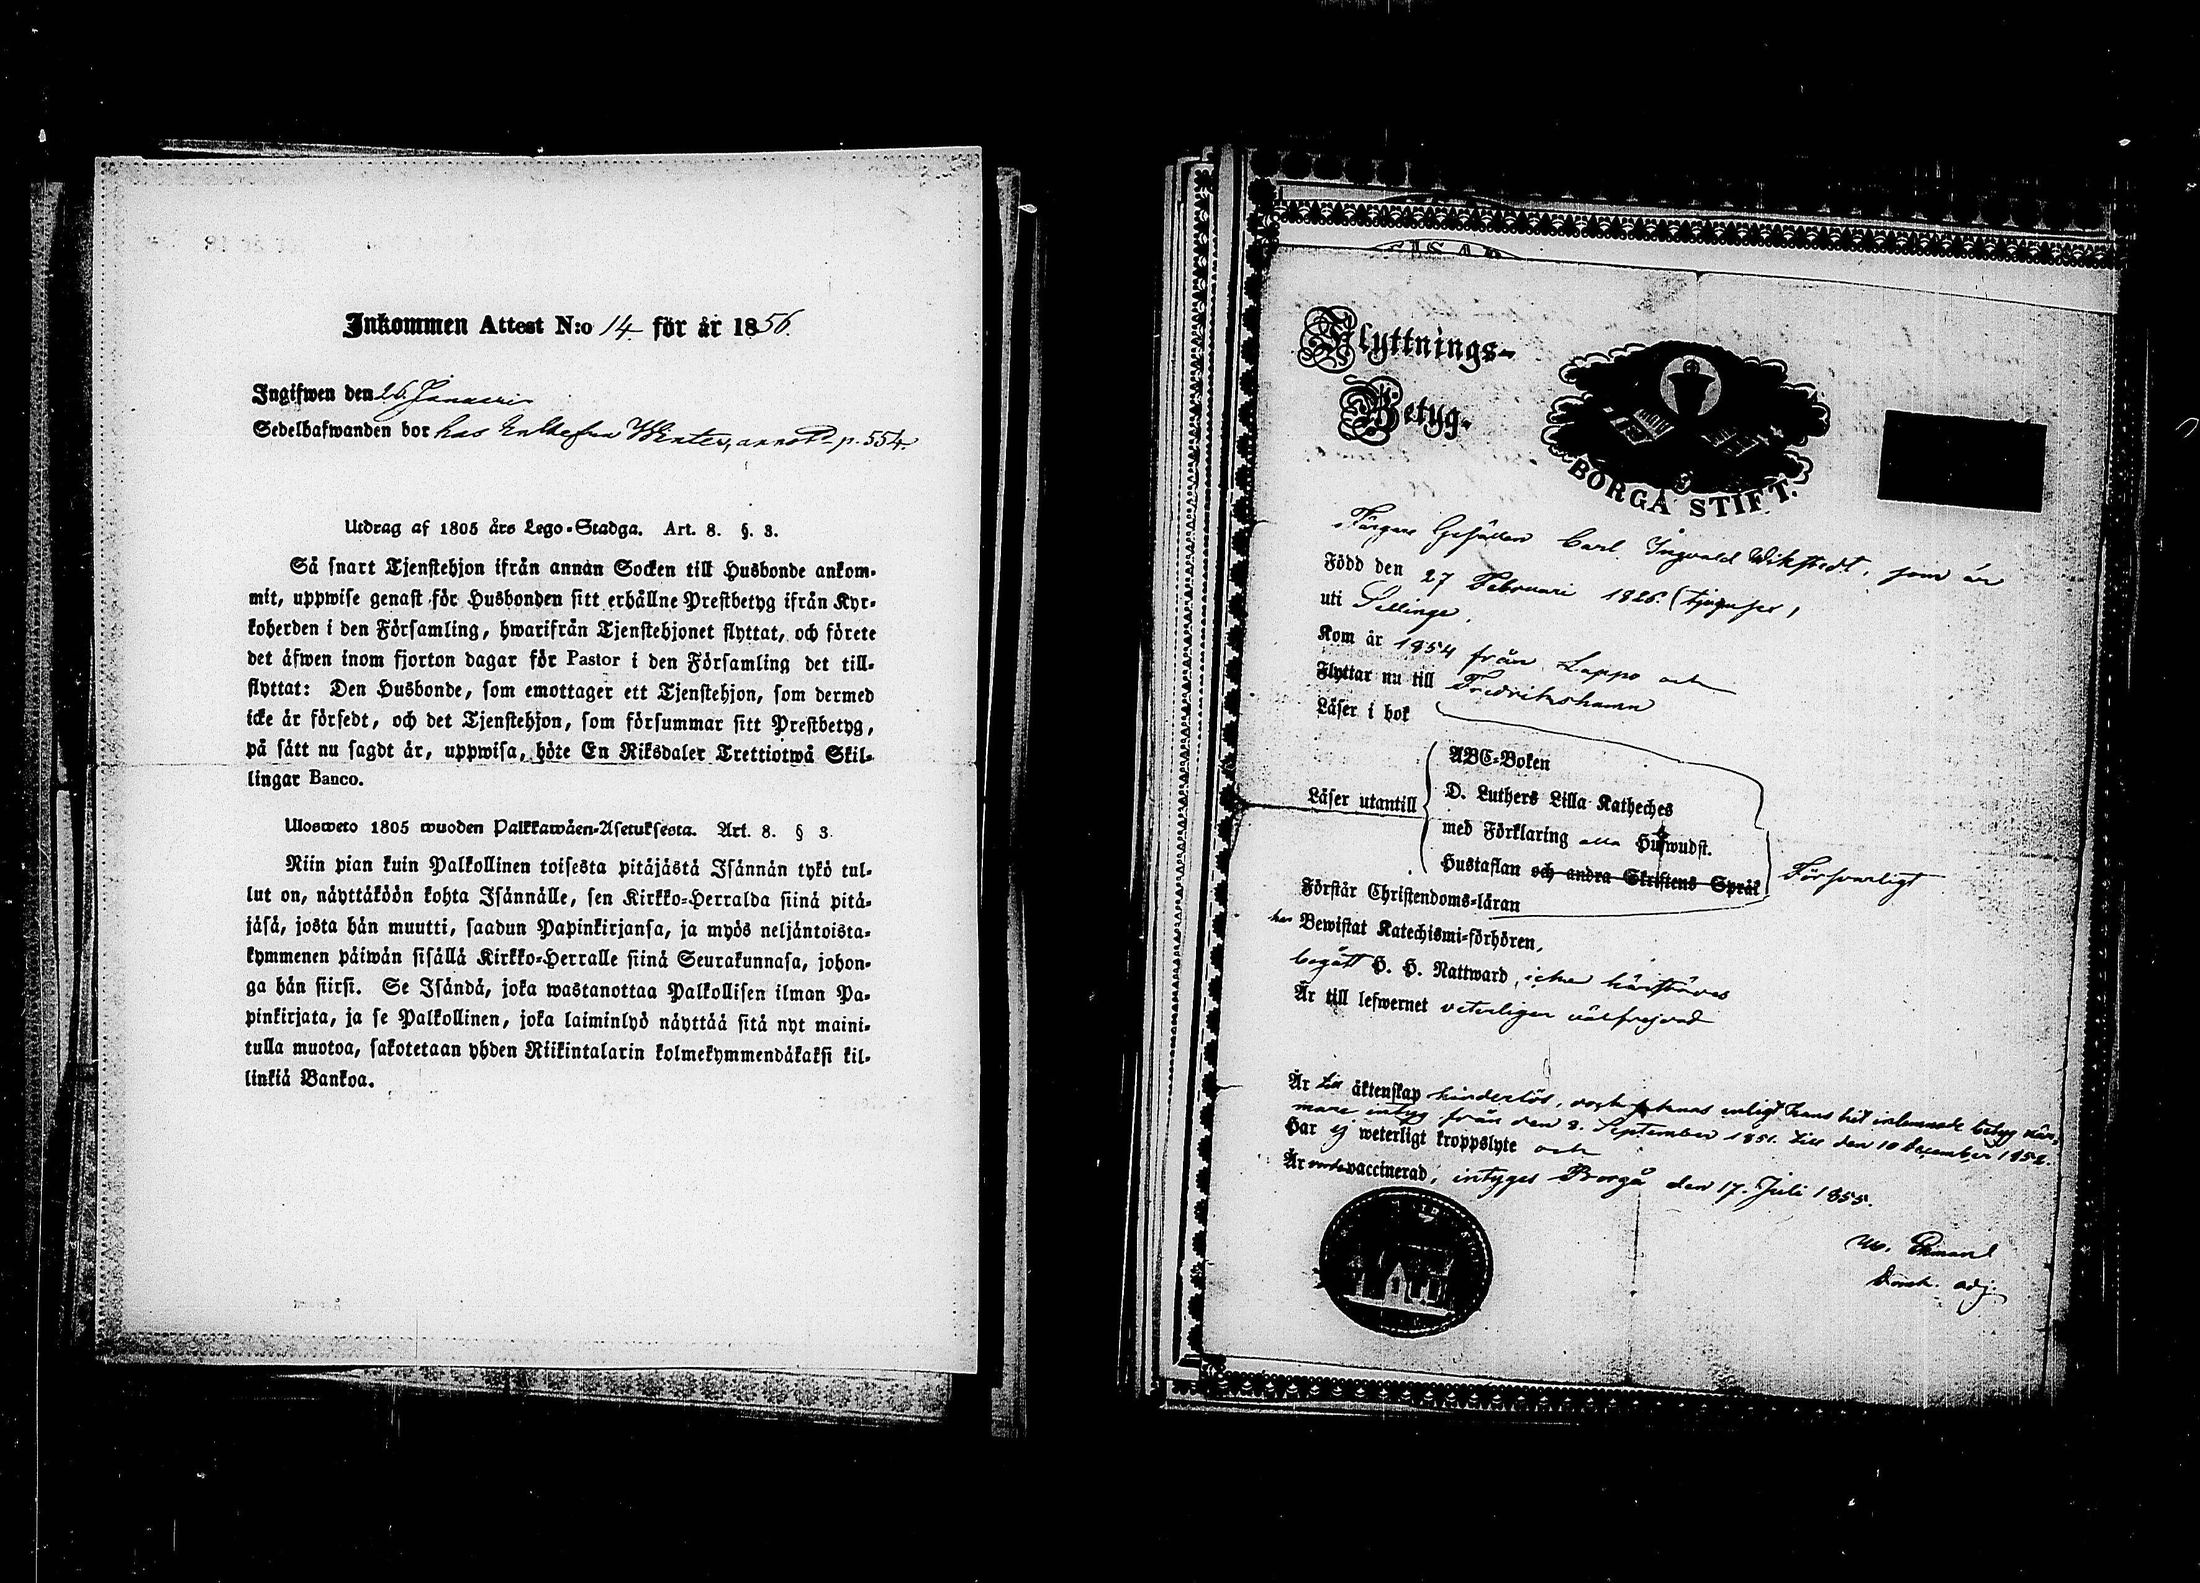 Inkommen Attest N:o 14 för år 1856.
Ingifwen den 26 Januari
Sedelhafwanden bor hos Enkefru Winter, annot. p. 554.
Utdrag af 1805 års Lego-Stadga. Art. 8. §. 3.
Så snart Tjenstehjon ifrån annan Socken till Husbonde ankom-
mit, uppwise genast för Husbonden sitt erhållne Prestbetyg ifrån Kyr-
koherden i den Församling, hwarifrån Tjenstehjonet flyttat, och förete
det äfwen inom fjorton dagar för Pastor i den Församling det till-
flyttat: Den Husbonde, som emottager ett Tjenstehjon, som dermed
icke är försedt, och det Tjenstehjon, som försummar sitt Prestbetyg,
på sätt nu sagdt är, uppwisa, böte En Riksdaler Trettiotwå Skil-
lingar Banco.
Ulosweto 1805 wuoden Palkkawäen-Asetuksesta. Art. 8. § 3.
Niin pian kuin Palkollinen toisesta pitäjästä Isännän tykö tul-
lut on, näyttäköön kohta Isännälle, sen Kirkko-Herralda siinä pitä-
jäsä, josta hän muutti, saadun Papinkirjansa, ja myös neljäntoista-
kymmenen päiwän sisällä Kirkko-Herralle siinä Seurakunnasa, johon-
ga hän siirsi. Se Isändä, joka wastanottaa Palkollisen ilman Pa-
pinkirjata, ja se Palkollinen, joka laiminlyö näyttää sitä nyt maini-
tulla muotoa, sakotetaan yhden Riikintalarin kolmekymmendäkaksi kil-
linkiä Bankoa.
Flyttnings-
Betyg.
BORGÅ STIFT.
Färgare Gesällen Carl Ingvald Wikstedt, som är
Född den 27 Februari 1826. (tjugusex)
uti Sellinge.
Kom år 1854 från Lappo och
Flyttar nu till Fredrikshamn
Läser i bok
ABC-Boken
Läser utantill
D. Luthers Lilla Katheches
med Förklaring alla Hufwudst.
Hustaflan och andra Skriftens Språk
Försvarligt
Förstår Christendoms-läran
har Bewistat Katechismi-förhören,
begått H. H. Nattward, icke härstädes
Är till lefwernet veterligen välfrejdad
Är till äktenskap hinderlös, dock saknas enligt hans hit inlemnade betyg när-
mare intyg från den 8. September 1851. till den 10 December 1852.
Har ej weterligt kroppslyte och
Är vaccinerad, intyges Borgå den 17. Juli 1855.